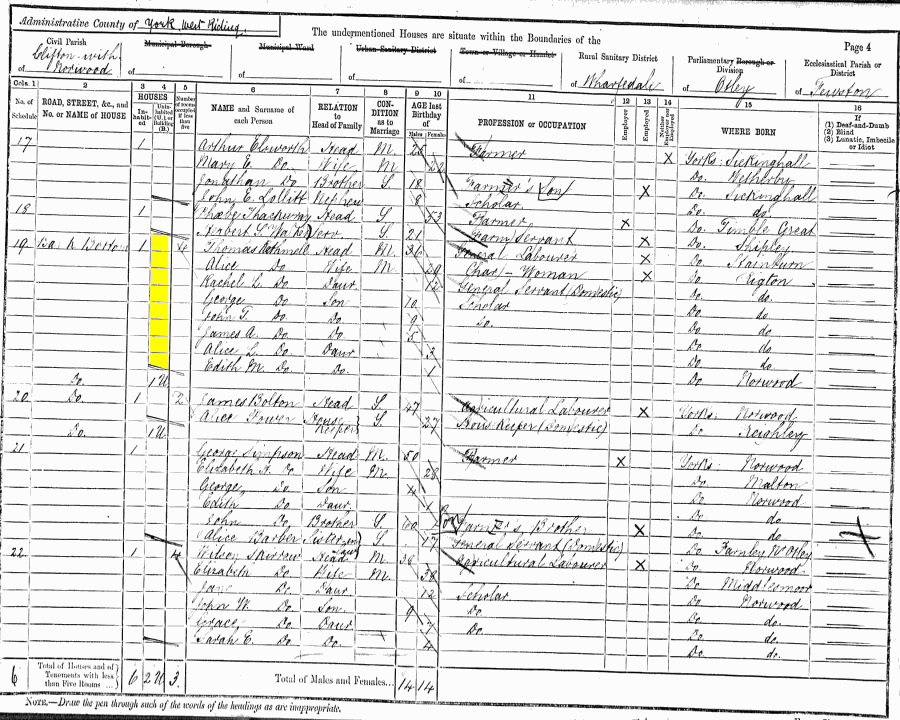 Administrative County of York, West Riding,
The undermentioned Houses are situate within the Boundaries of the
Page 4
Civil Parish
of Clifton with Norwood
Municipal Borough
of
Municipal Ward
of
Urban Sanitary District
of
Town or Village or Hamlet
of
Rural Sanitary District
of Wharfedale
Parliamentary Borough or Division
of Otley
Ecclesiastical Parish or District
of Fewston
Cols. 1 2 3 4 5 6 7 8 9 10 11 12 13 14 15 16
No. of Schedule
ROAD, STREET, &c., and No. or NAME of HOUSE
HOUSES
In-habit-ed
Unin-habited (U.) or Building (B.)
Number of rooms occupied if less than five
NAME and Surname of each Person
RELATION to Head of Family
CON-DITION as to Marriage
AGE last Birthday of
Males Females
PROFESSION or OCCUPATION
Employer
Employed
Neither Employer nor Employed
WHERE BORN
If
(1) Deaf-and-Dumb
(2) Blind
(3) Lunatic, Imbecile or Idiot
17 1 Arthur Elsworth Head M. Farmer X Yorks: Sickinghall
Mary E. Do. Wife M. 22 Do. Wetherby
Jonathan Do Brother S. 18 Farmer's Son X Do. Sickinghall
John E. Nephew 8 Scholar Do. do.
18 1 Phœbe Thackwray Head S. 53 Farmer X Do. Timble Great
Herbert Serv S. 21 Farm Servant X Do. Shipley
19 1 4 Thomas Head M. 36 General Labourer X Do. Stainburn
Alice Do Wife M. 29 Char-Woman X Do. Rigton
Rachel L. Do Daur 12 General Servant (Domestic) Do. do.
George Do Son 10 Scholar Do. do.
John T. Do. Do. 9 Do. Do. do
James A. Do. Do 5 Do. do.
Alice L. Do. Daur 3 Do. do.
Edith M. Do. Do. 1 Do Norwood
Do. 1U
20 Do. 1 2 James Bolton Head S. 47 Agricultural Labourer X Yorks: Norwood
Alice Tower House Keeper S. 27 House Keeper (Domestic) Do Keighley
Do. 1U
21 1 George Simpson Head M. 50 Farmer X Yorks: Norwood
Elizabeth H. Do. Wife M. 28 Do. Malton
George Do Son 4 Do. Norwood
Edith Do. Daur 1 Do. do.
John Do. Brother S. 60 Farmer's Brother X Do. do.
Alice Barber Sister in Law S. 17 General Servant (Domestic) Do. Farnley Nr Otley
22 1 4 Wilson Skirrow Head M. 38 Agricultural Labourer X Do. Norwood
Elizabeth Do. Wife M. 38 Do. Middlesmoor
Jane Do. Daur. 12 Scholar Do. Norwood
John W. Do. Son. 9 Do. Do. do.
Grace Do. Daur 7 Do. Do. do.
Sarah E. Do. Do. 4 Do. do.
6 Total of Houses and of Tenements with less than Five Rooms ... 6 2U 3. Total of Males and Females... 14 14
NOTE.—Draw the pen through such of the words of the headings as are inappropriate.